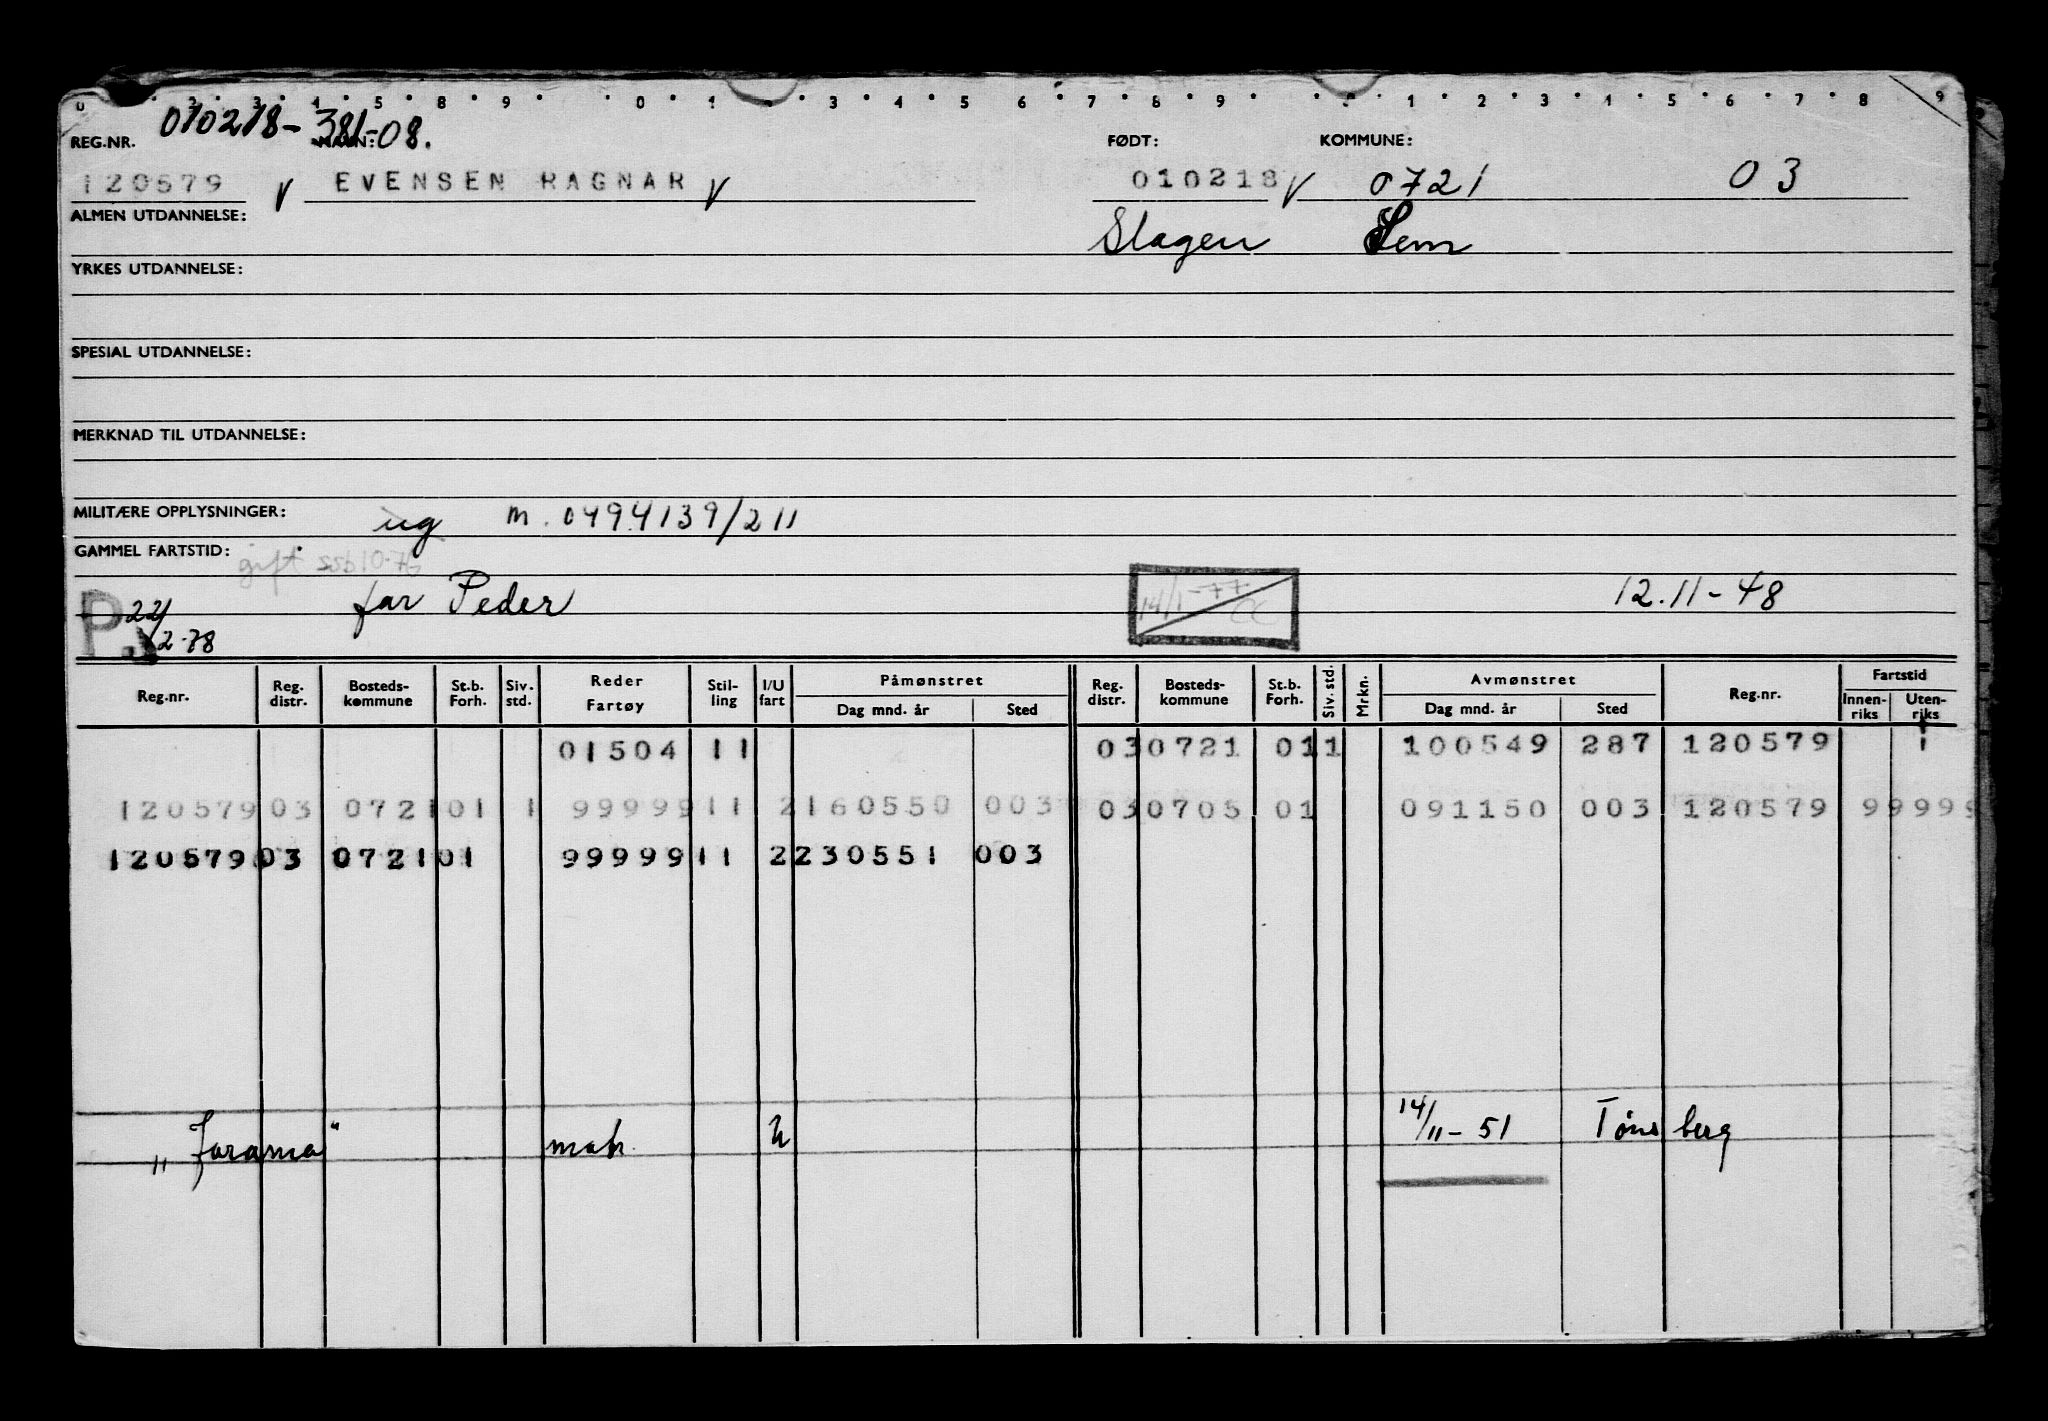 010218-381-08.
REG.NR. NAVN: FØDT: KOMMUNE:
120579 V EVENSEN RAGNAR V 010218 V 0721 03
ALMEN UTDANNELSE: Slagen Sem
YRKES UTDANNELSE:
SPESIAL UTDANNELSE:
MERKNAD TIL UTDANNELSE:
MILITÆRE OPPLYSNINGER: ug m. 0494139/211
GAMMEL FARTSTID: gift ssb 10.76
P. 22/2-78 far Peder 14/1-77 12.11-48
Reg.nr. Reg. distr. Bosteds-kommune St.b. Forh. Siv. std. Reder Fartøy Stil-ling I/U fart Påmønstret Dag mnd. år Sted Reg. distr. Bosteds-kommune St.b. Forh. Siv. std. Mrkn. Avmønstret Dag mnd. år Sted Reg.nr. Fartstid Innen-riks Uten-riks
01504 11 03 0721 01 1 100549 287 120579 1
120579 03 0721 01 1 99999 11 2 160550 003 03 0705 01 091150 003 120579 99999
120579 03 0721 01 99999 11 2 230551 003
"Jarama" matr. U 14/11-51 Tønsberg